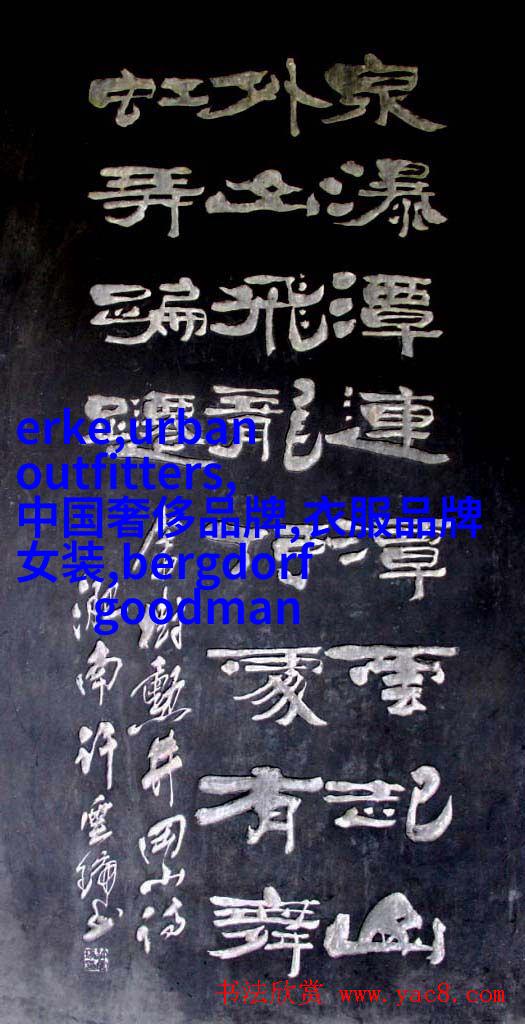 泉瀑潭連潭雲起山
外山飛龍有舞
虹弄蹁躚
井岡山詩
湖南許雲書
erke,urban
outfitters,
中国奢侈品牌,衣服品牌
女装,bergdorf
goodman
书法欣赏 www.yac8.com